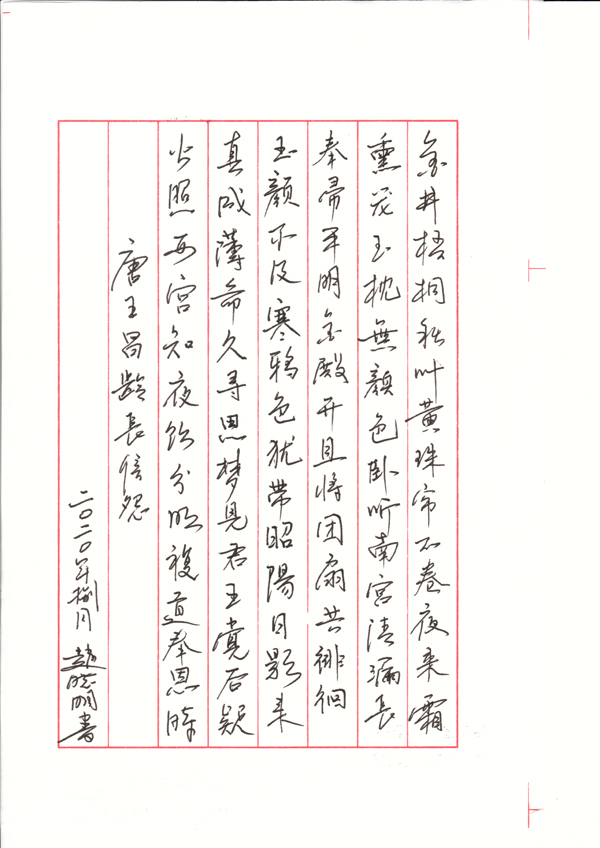 金井梧桐秋叶黄珠帘不卷夜来霜
熏笼玉枕無颜色卧听南宫清漏长
奉帚平明金殿开且将团扇共徘徊
玉颜不及寒鸦色犹带昭陽日影来
真成薄命久寻思梦见君王觉后疑
火照西宫知夜饮分明複道奉恩時
唐王昌龄長信怨
二〇二〇年捌月 趙曉明書